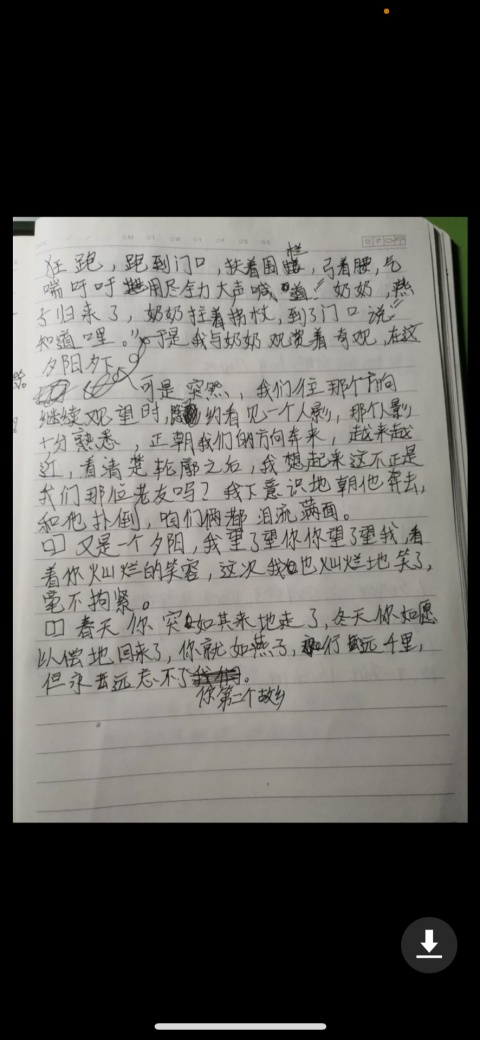 狂跑，跑到门口，扶着围栏，弓着腰，气
喘吁吁用尽全力大声喊道：“奶奶，燕
子归来了，奶奶拄着拐杖，到了门口说
知道哩。”于是我与奶奶观赏着奇观，在这
夕阳夕下
可是突然，我们在那个方向
继续观望时，隐约看见一个人影，那个人影
十分熟悉，正朝我们的方向奔来，越来越
近，看清楚轮廓之后，我想起来这不正是
我们那位老友吗？我下意识地朝他奔去，
和他扑倒，咱们俩都泪流满面。
又是一个夕阳，我望了望你你望了望我，看
着你灿烂的笑容，这次我也灿烂地笑了，
毫不拘紧。
春天你突如其来地走了，冬天你如愿
以偿地回来了，你就如燕子，行远千里，
但永去远忘不了
你第二个故乡